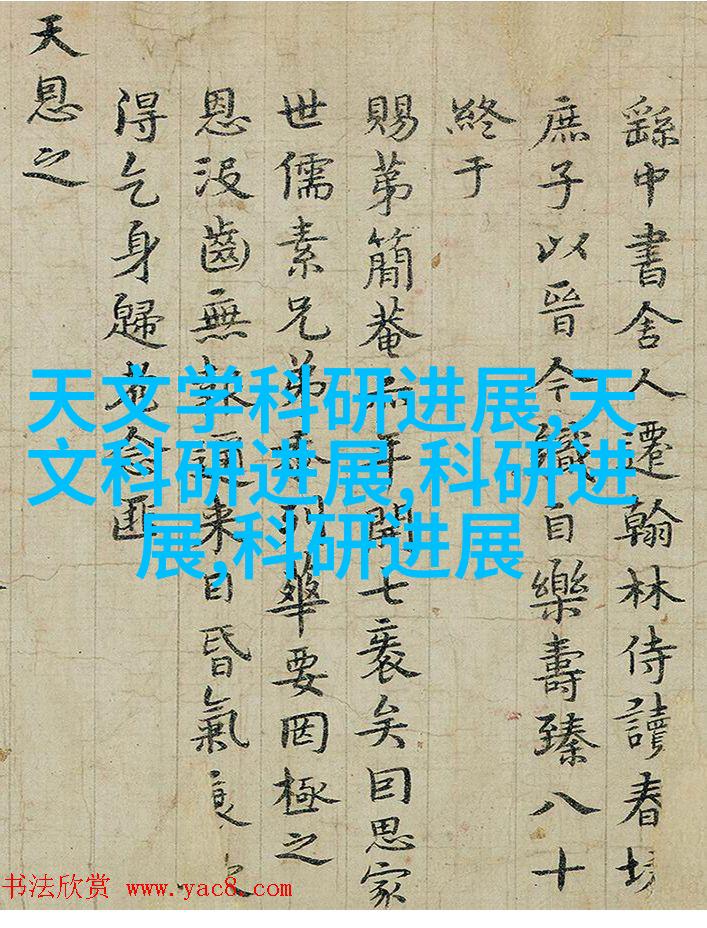 繇中書舍人遷翰林侍讀春坊
庶子以晉今職自樂壽臻八十
終于
賜第簡菴年開七袠矣囙思家
世儒素兄弟列華要罔極之
恩沒齒無報邇來目昏氣衰
得乞身歸念
天恩之
天文学科研进展,天
文科研进展,科研进
展,科研进展
书法欣赏 www.yac8.com